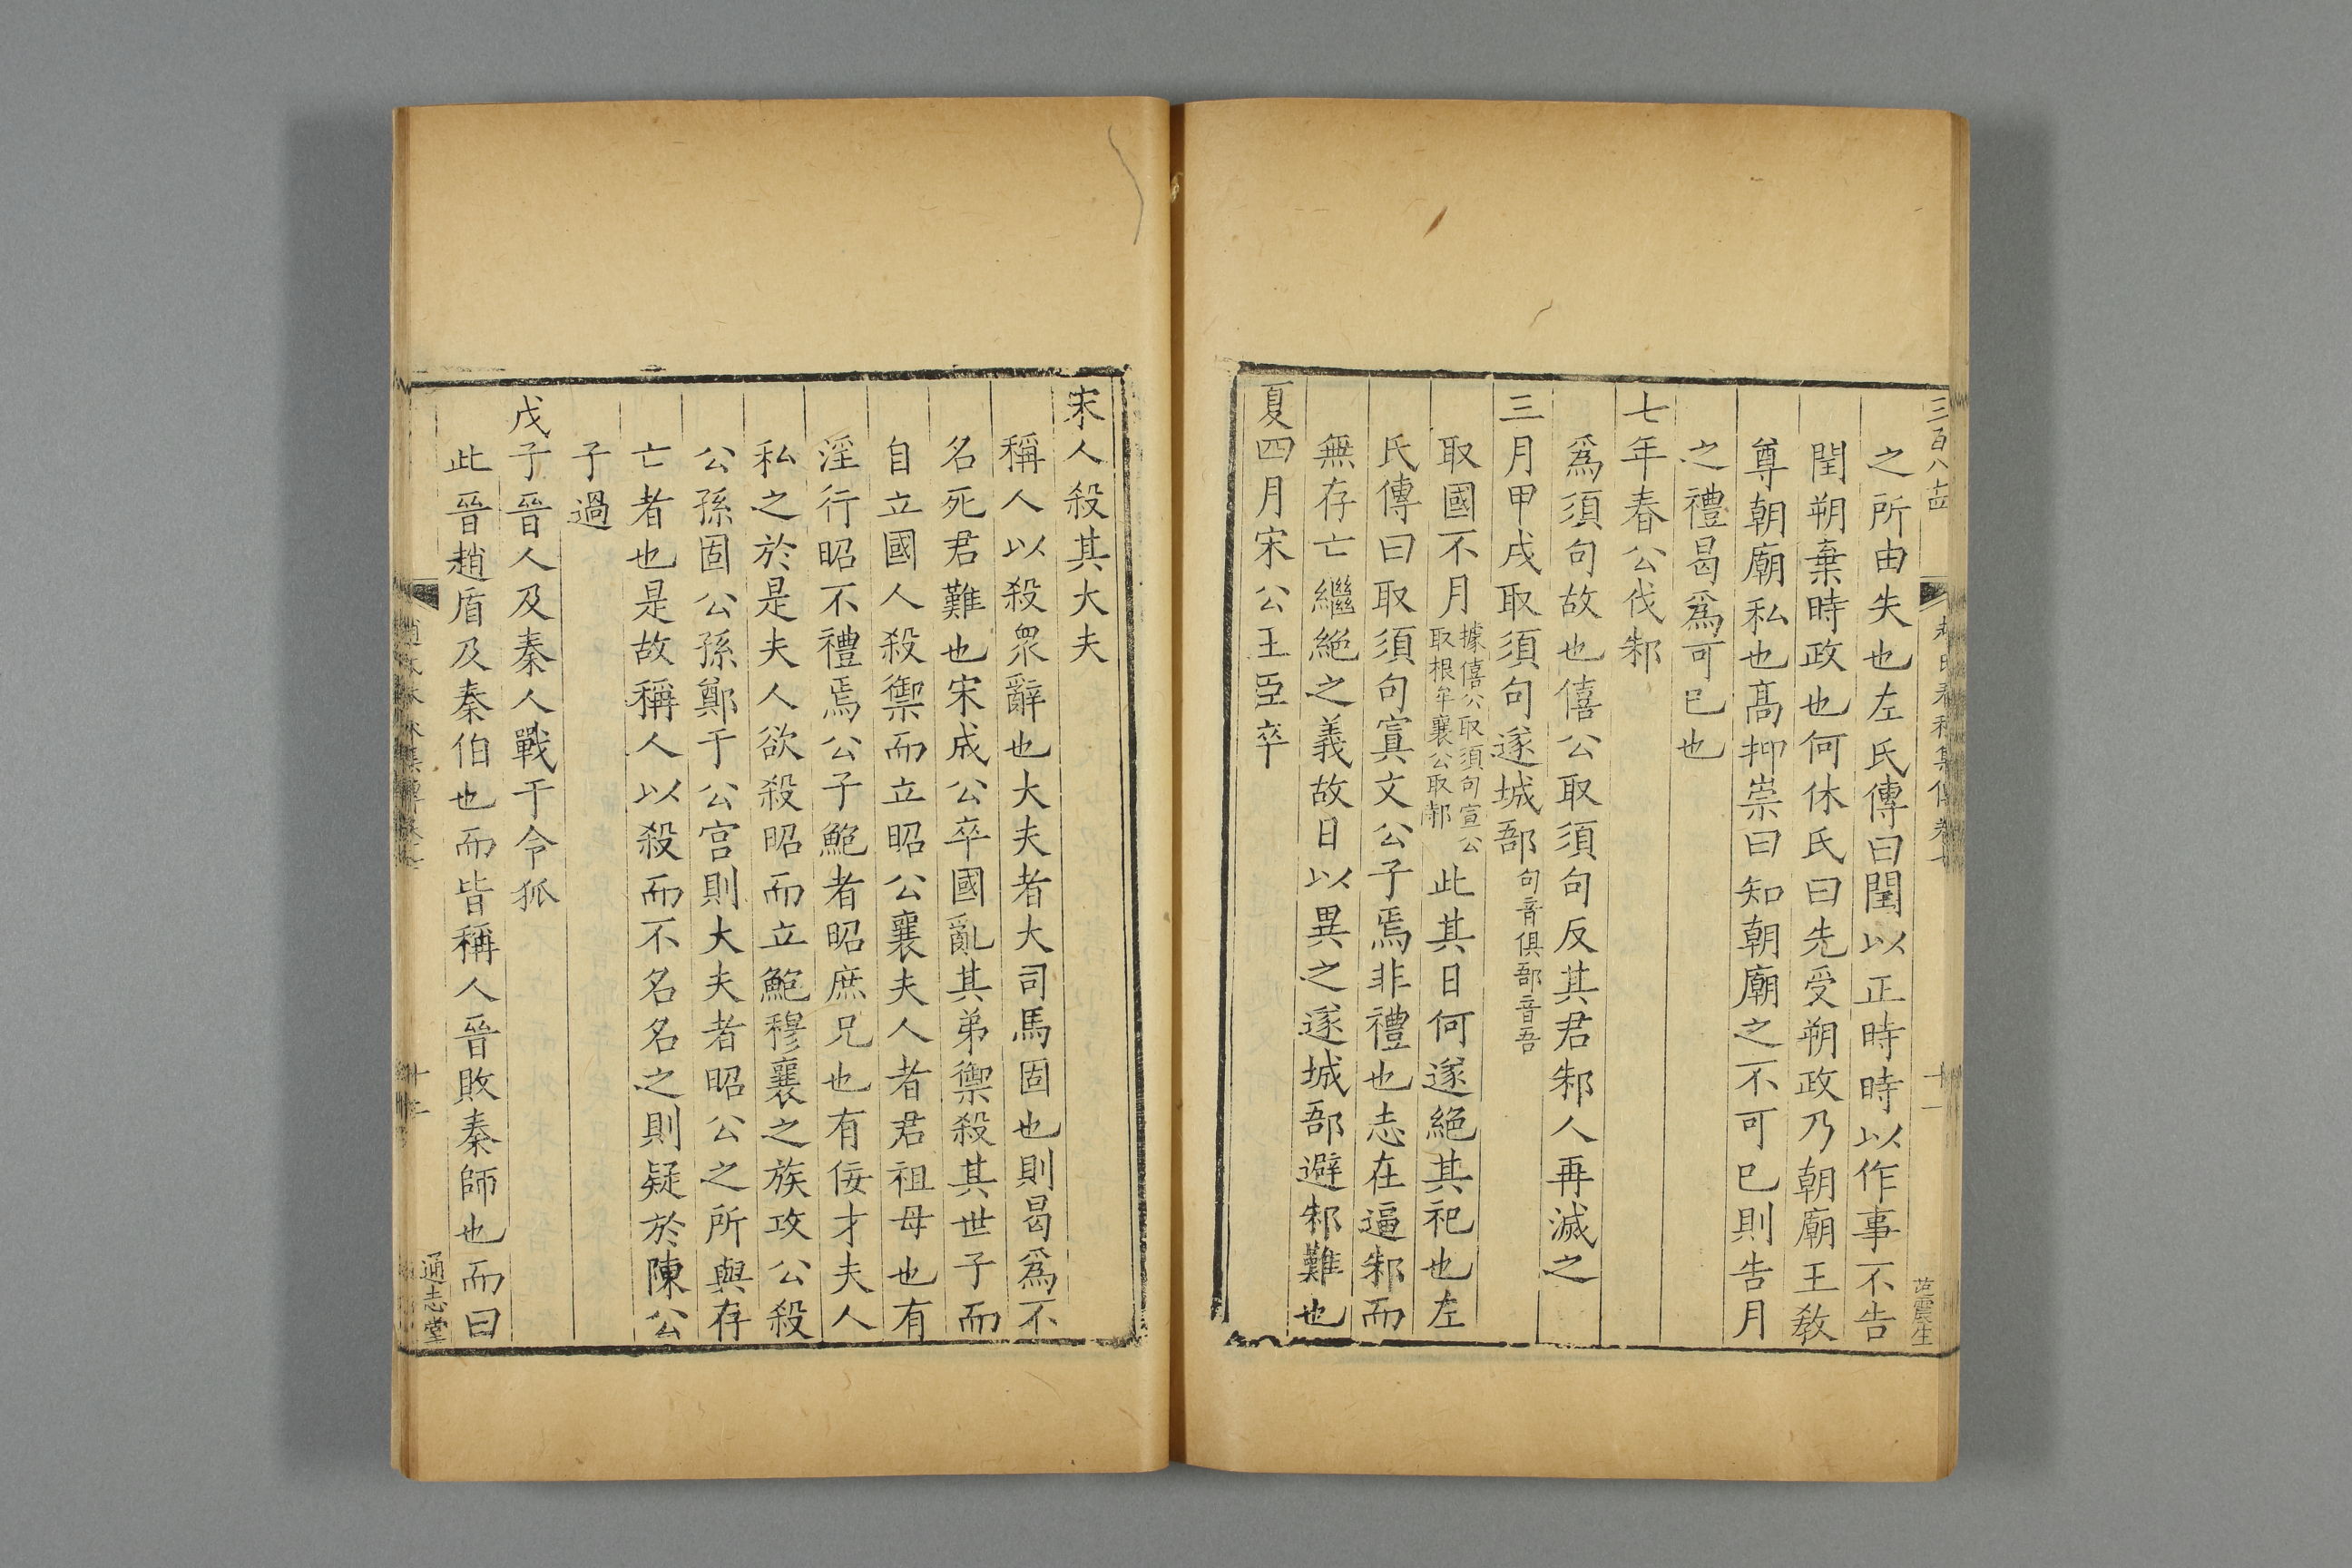 三百八十四
之所由失也左氏傳曰閏以正時時以作事不告
閏朔棄時政也何休氏曰先受朔政乃朝廟王教
尊朝廟私也髙抑崇曰知朝廟之不可已則告月
之禮曷爲可已也
七年春公伐邾
爲須句故也僖公取須句反其君邾人再滅之
三月甲戌取須句遂城郚句音俱郚音吾
取國不月據僖公取須句宣公取根牟襄公取邿此其日何遂絕其祀也左
氏傳曰取須句寘文公子焉非禮也志在逼邾而
無存亡繼絕之義故日以異之遂城郚避邾難也
夏四月宋公王臣卒
宋人殺其大夫
稱人以殺眾辭也大夫者大司馬固也則曷爲不
名死君難也宋成公卒國亂其弟禦殺其世子而
自立國人殺禦而立昭公襄夫人者君祖母也有
淫行昭不禮焉公子鮑者昭庶兄也有佞才夫人
私之於是夫人欲殺昭而立鮑穆襄之族攻公殺
公孫固公孫鄭于公宫則大夫者昭公之所與存
亡者也是故稱人以殺而不名名之則疑於陳公
子過
戊子晉人及秦人戰于令狐
此晉趙盾及秦伯也而皆稱人晉敗秦師也而曰
十二
通志堂